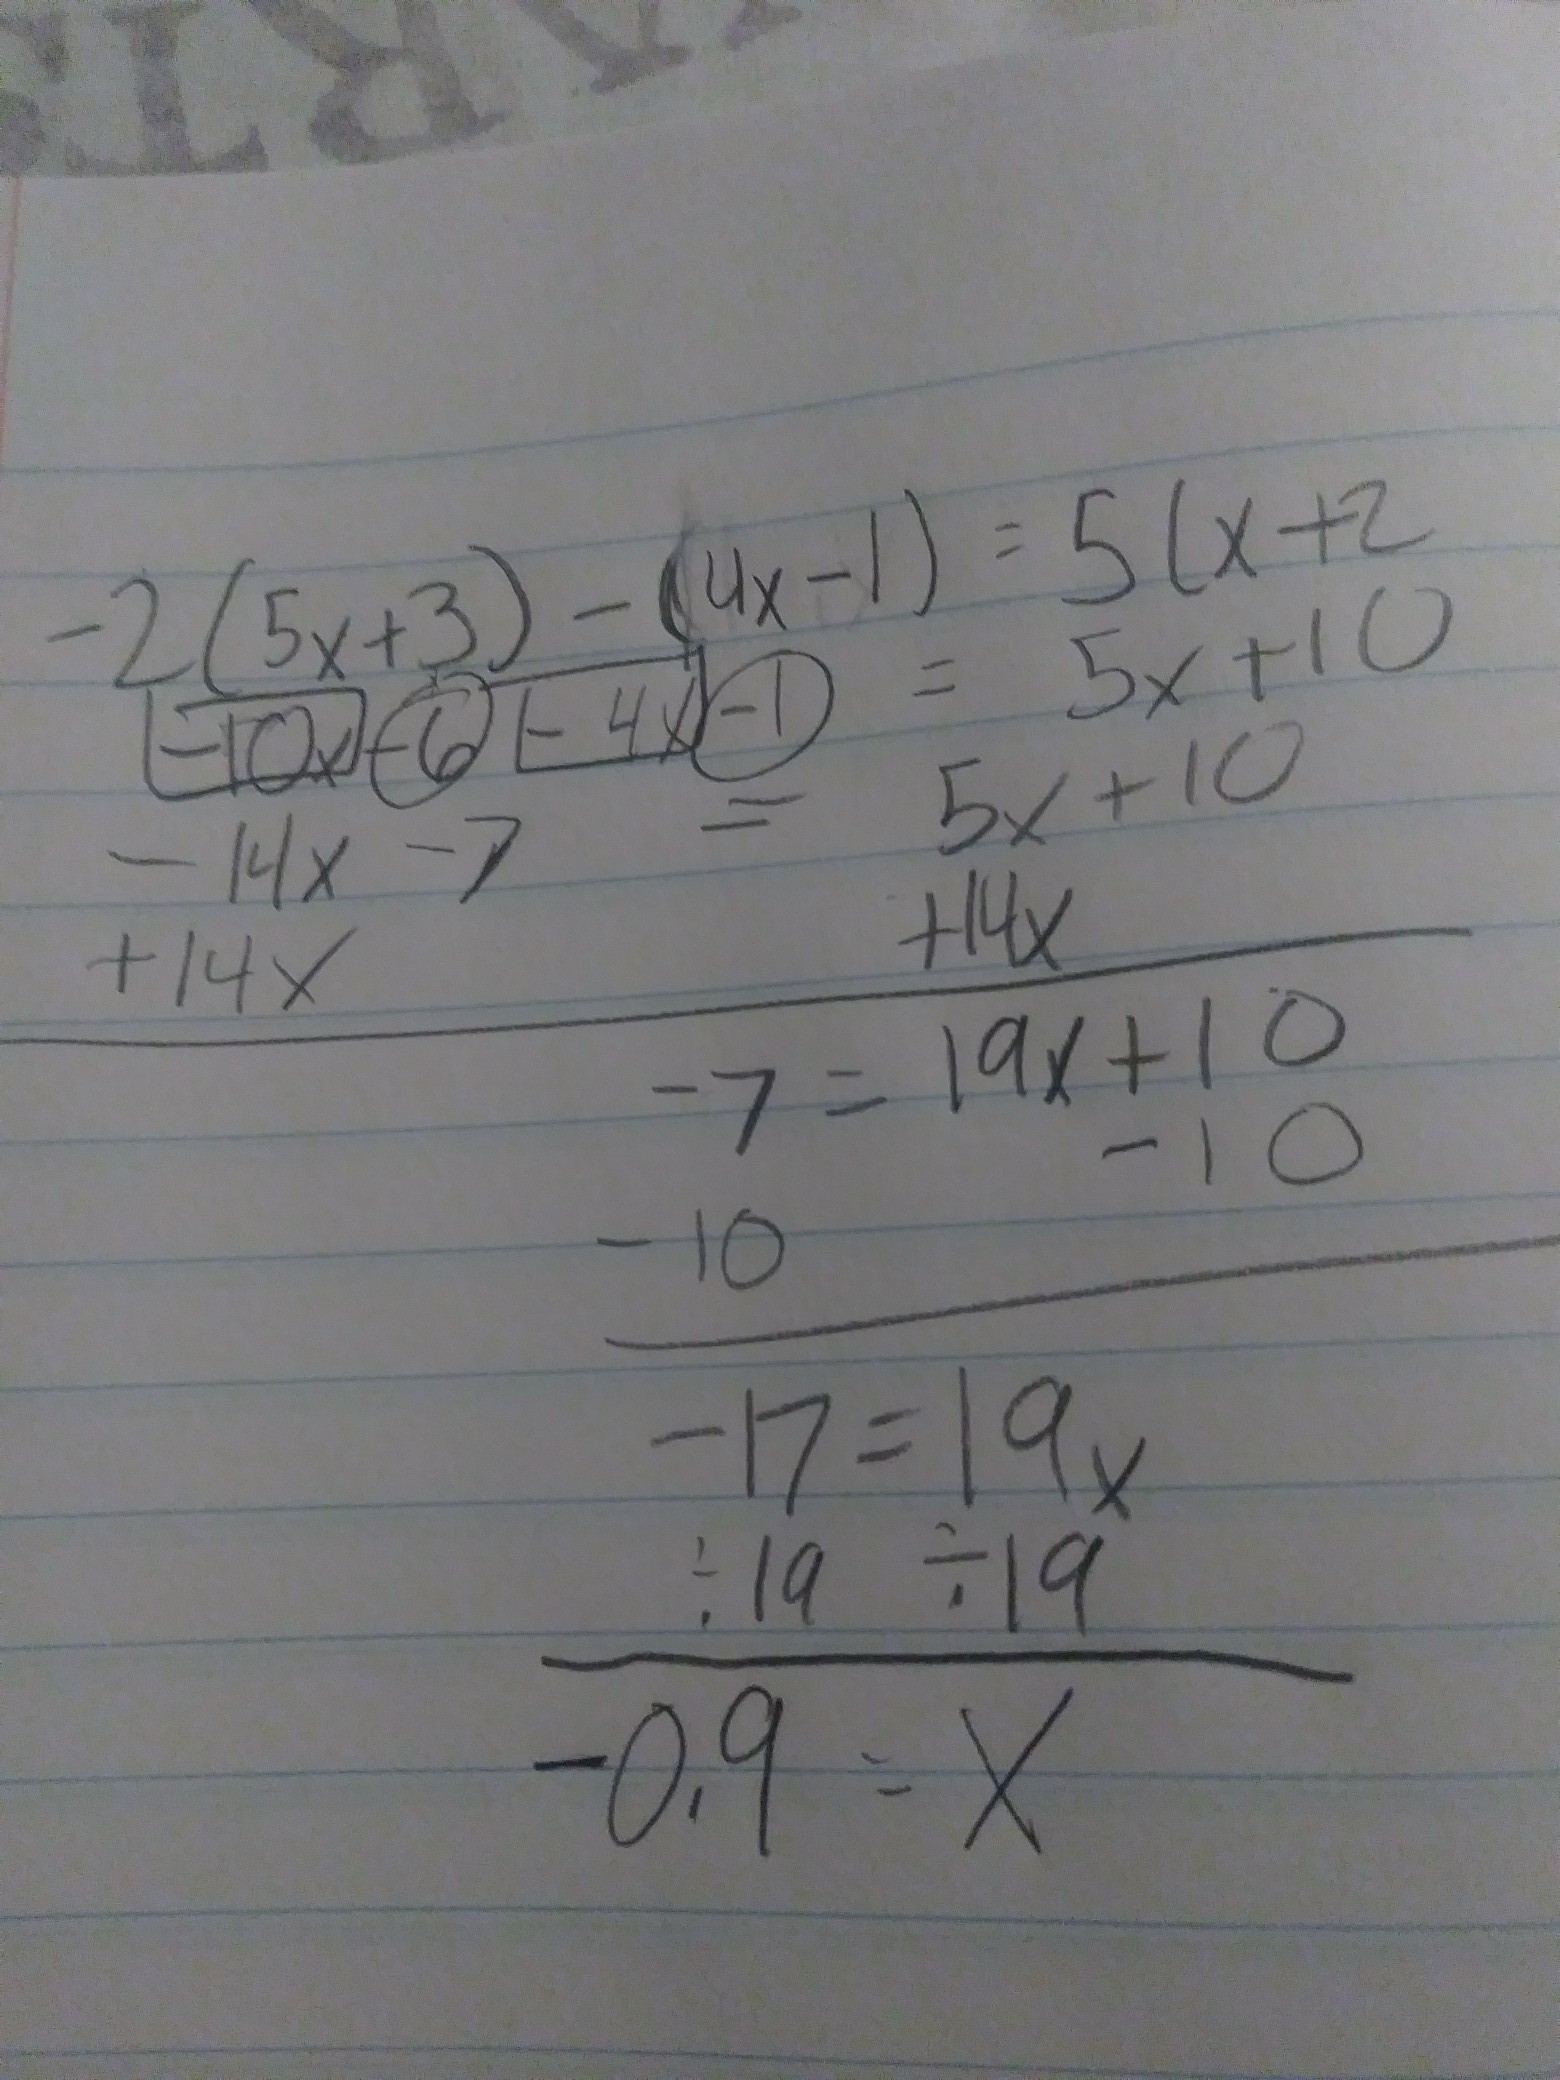 ARTE
-2(5x+3) - (4x-1) = 5(x+2
-10x -6 - 4x -1 = 5x+10
-14x -7 = 5x+10
+14x +14x
-7 = 19x+10
-10
-10
-17 = 19x
÷19 ÷19
-0.9 = x